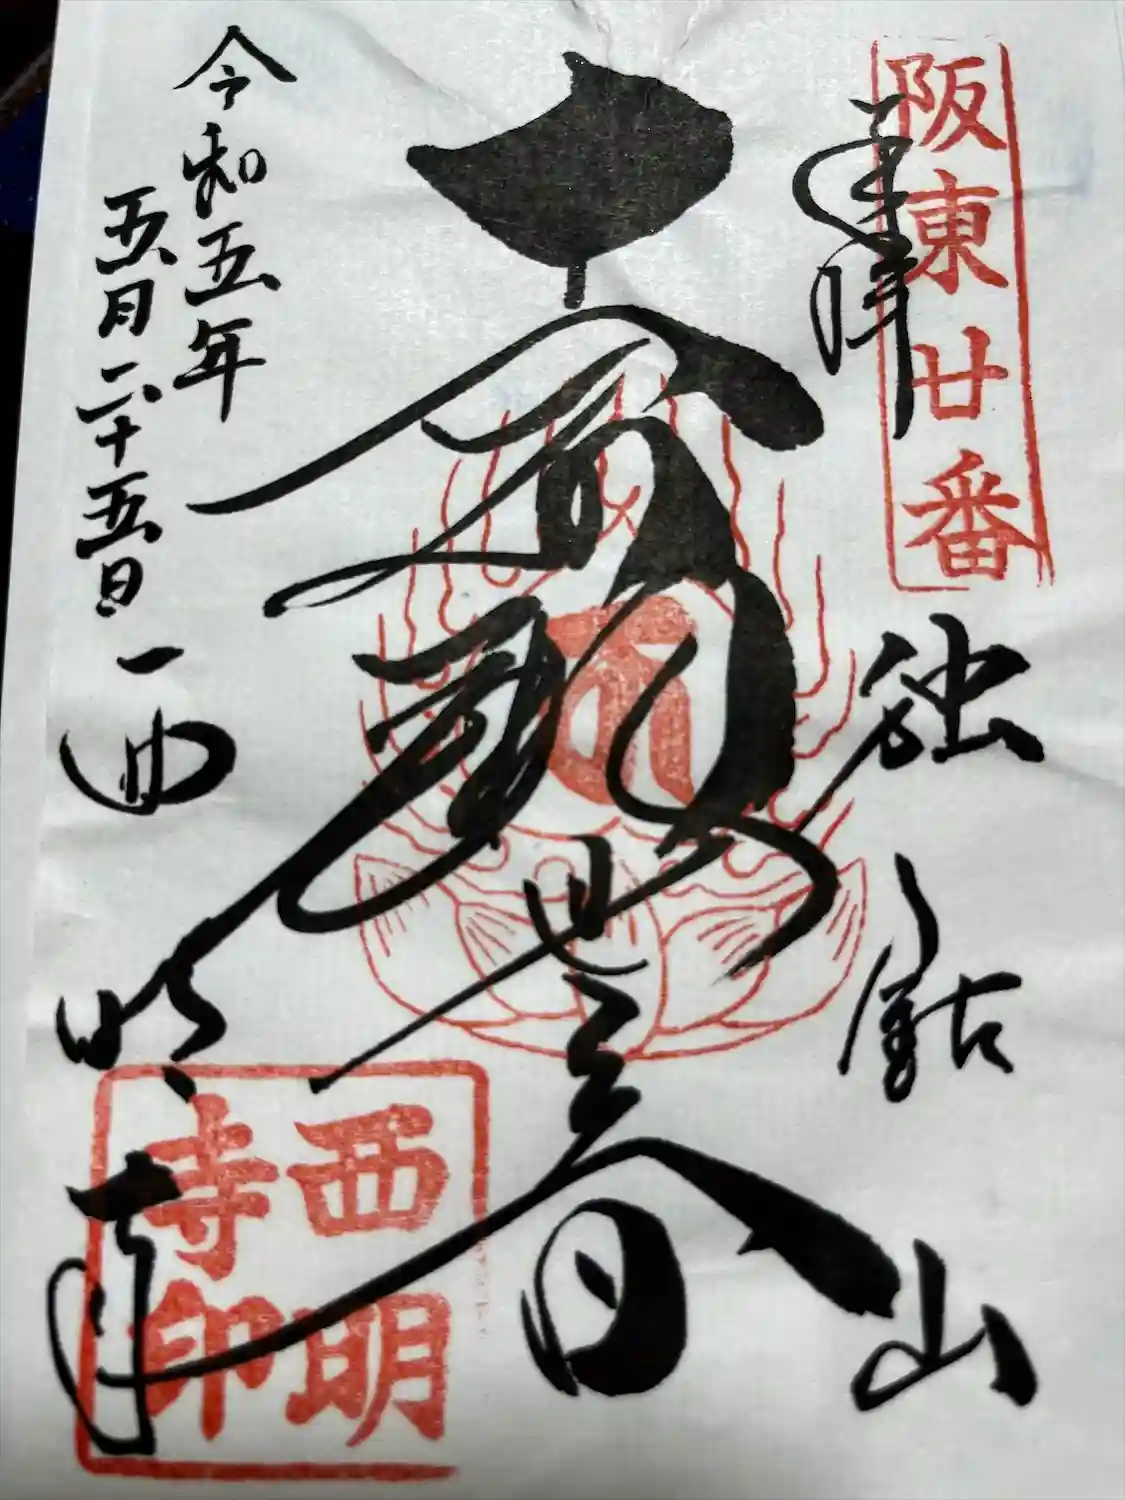 阪東廿番
奉拝
独鈷山
観世音
令和五年
五月二十五日
西明寺
西明
寺印